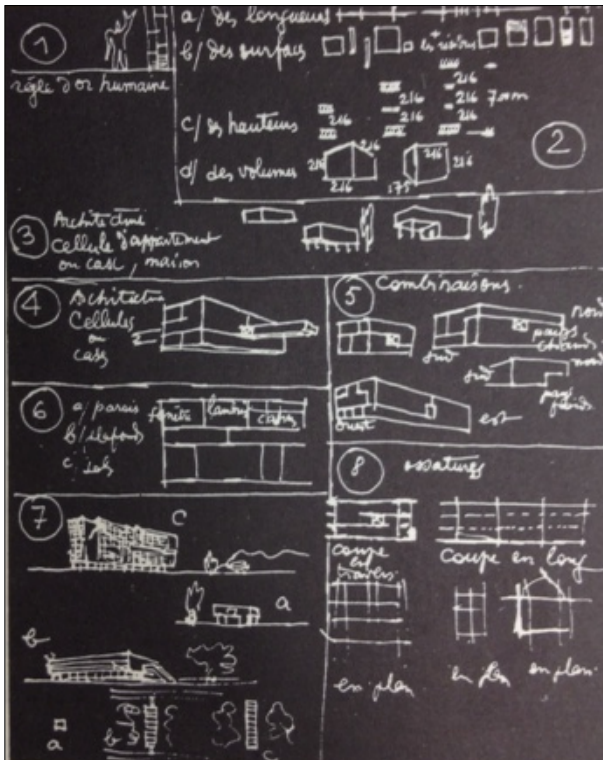 1
règle d'or humaine
2
a/ des longueurs
b/ des surfaces
216
216
216
216
216
216
7 mm
c/ des hauteurs
d/ des volumes
216
216
216
175
216
216
3
Architecture
cellule d'appartement
ou case, maison
4
Architecture
Cellules
ou
cases
5
Combinaisons.
nord
pays
chauds
sud
sud
nord
pays
froids
ouest
est
6
a/ parois
b/ plafonds
c/ sols
fenêtre
7
c
a
b
a
b
c
8
ossatures
coupe
en
travers
coupe en long
en plan
en plan
en plan